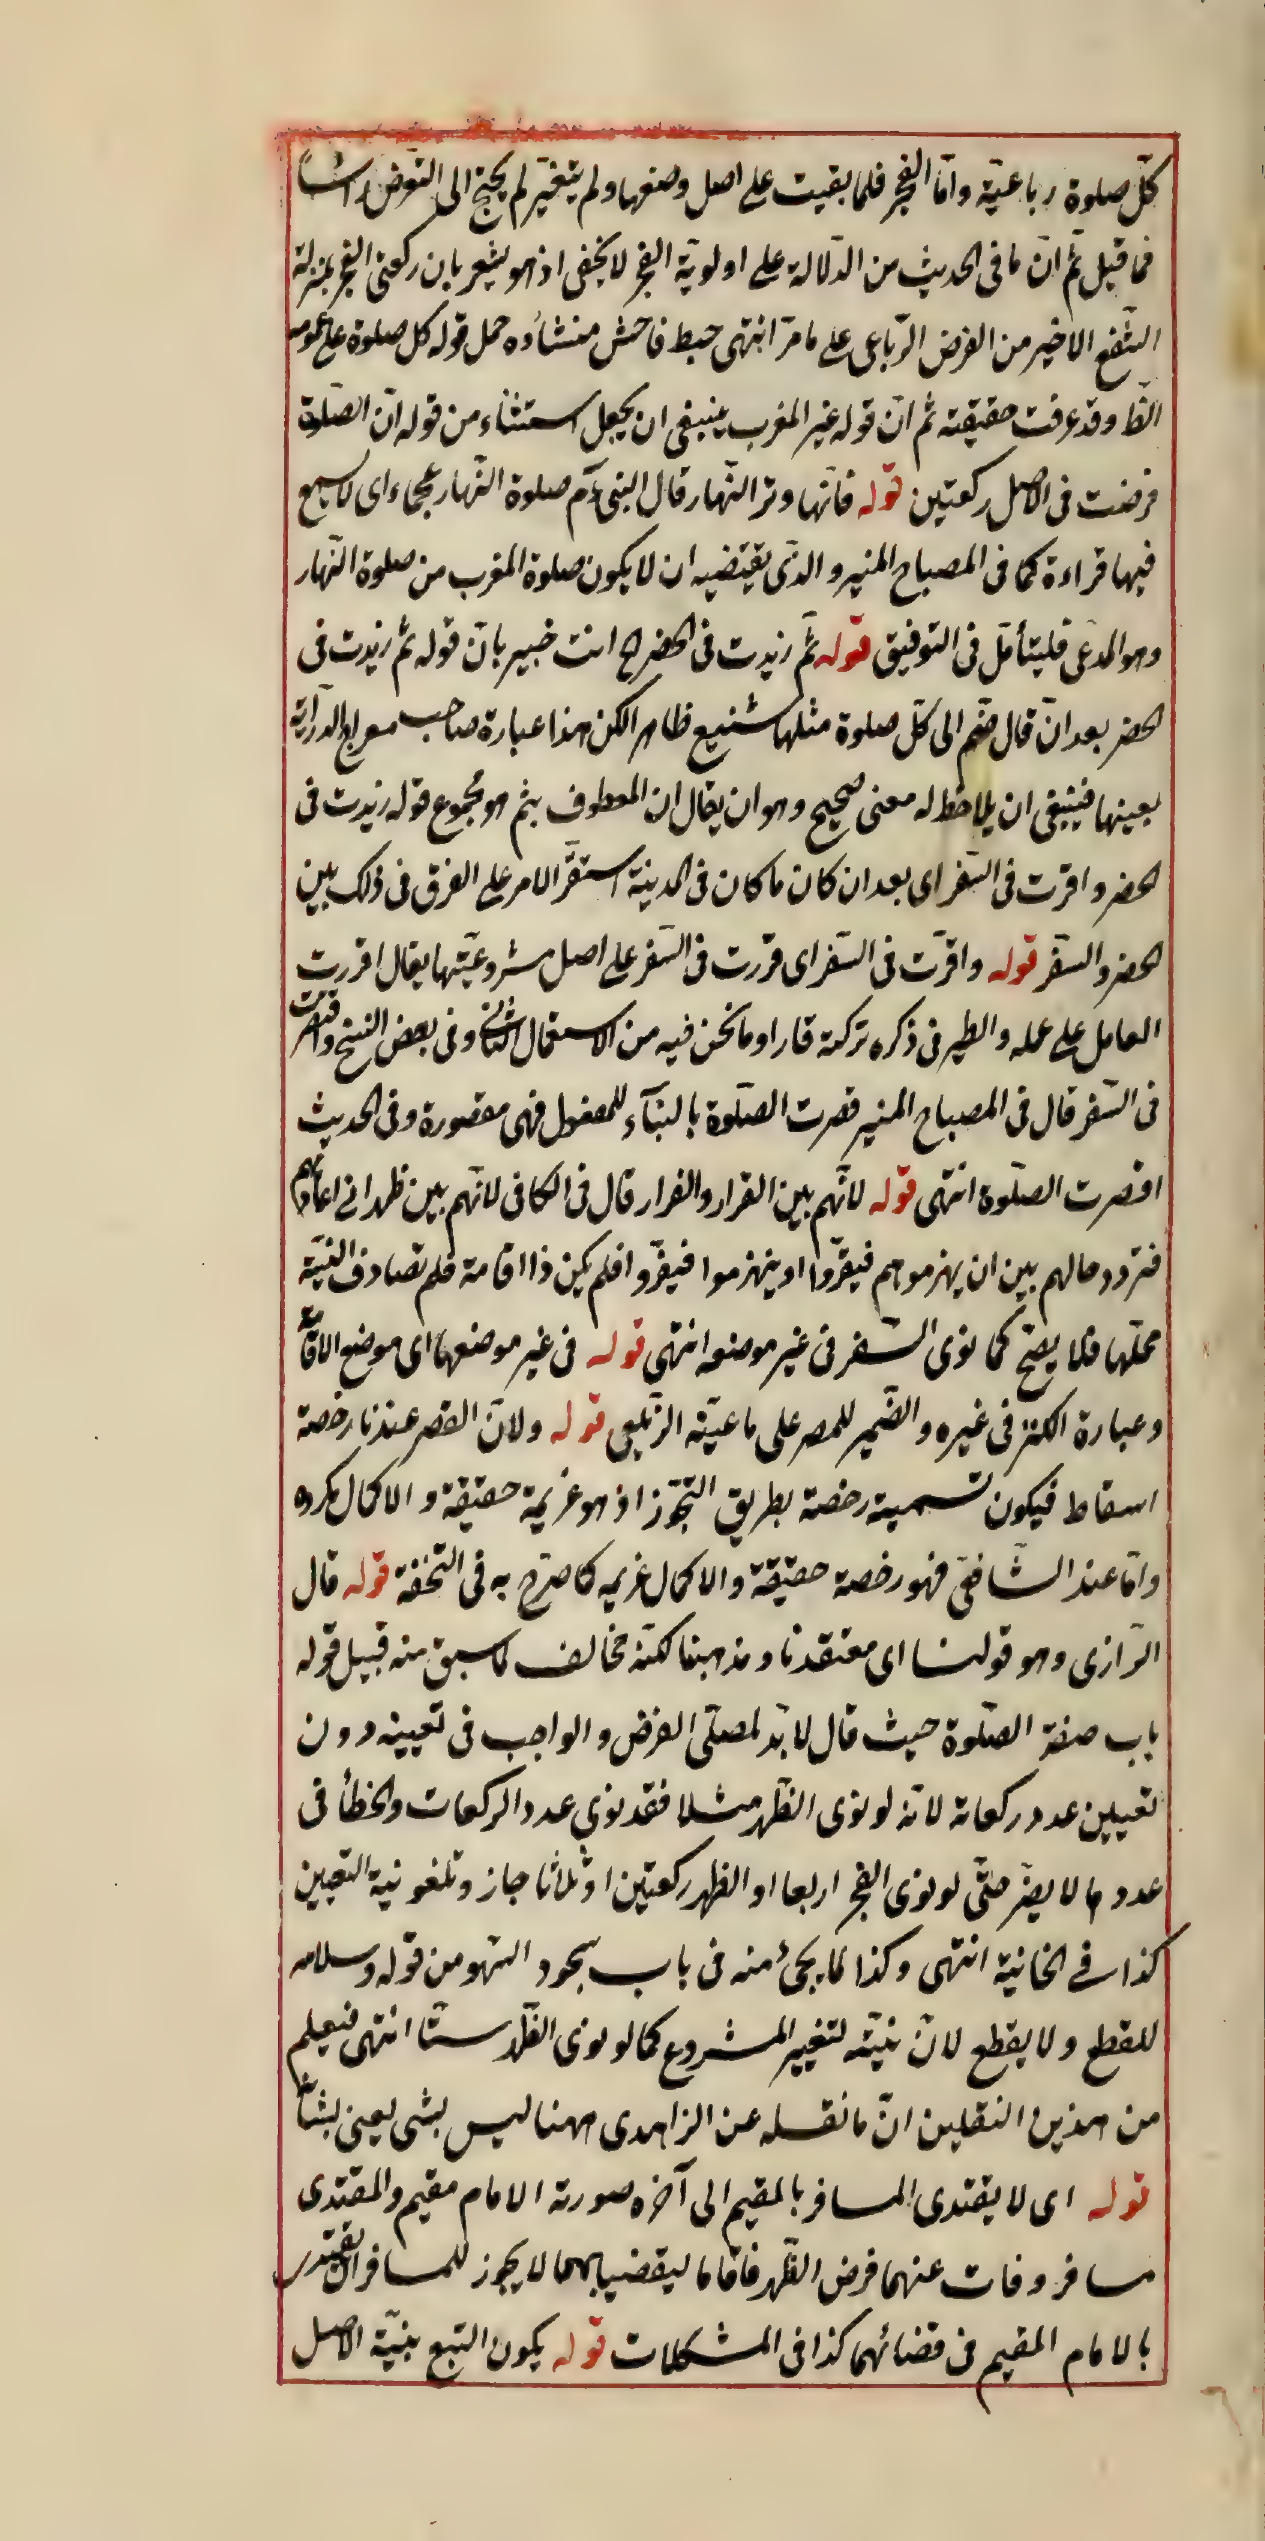 كلّ صلوة رباعيّة وامّا الفجر فلما بقيت على اصل وضعها ولم يتغيّر لم يحتج الى التعرّض
فما قيل ثم انّ ما فى الحديث من الدّلالة على اولويّة الفجر لا يخفى اذ هو يشعر بان ركعتى الفجر بمنزلة
الشّفع الاخير من الفرض الرّباعى على ما مرّ انتهى خبط فاحش منشاؤه حمل قوله كل صلوة على عمومه
الظ وقد عرفت حقيقته ثم انّ قوله غير المغرب ينبغى ان يجعل استثناء من قوله انّ الصّلوة
فرضت فى الاصل ركعتين قوله فانّها وتر النّهار قال النبىّ ءم صلوة النّهار عجماء اى لا يسمع
فيها قراءة كما فى المصباح المنير والذى يقتضيه ان لا يكون صلوة المغرب من صلوة النّهار
وهو المدّعى فليتأمّل فى التوفيق قوله ثم زيدت فى الحضر اح انت خبير بانّ قوله ثم زيدت فى
الحضر بعد انّ قال ضمّ الى كلّ صلوة مثلها شنيع ظاهر لكن هذا عبارة صاحب معراج الدّراية
بعينها فينبغى ان يلاحظ له معنى صحيح وهو ان يقال ان المعطوف بثم هو مجموع قوله زيدت فى
الحضر واقرت فى السّفر اى بعد ان كان ما كان فى المدينة استقرّ الامر على الفرق فى ذلك بين
الحضر والسّفر قوله واقرّت فى السّفر اى قررت فى السّفر على اصل مشروعيّتها يقال اقررت
العامل على عمله والطير فى ذكره تركته قارا وما نحن فيه من الاستعمال الثانى وفى بعض النسخ واقصرت
فى السّفر قال فى المصباح المنير قصرت الصّلوة بالبنآء للمفعول فهى مقصورة وفى الحديث
اقصرت الصّلوة انتهى قوله لانّهم بين القرار والفرار قال فى الكافى لانّهم بين ظهرانى اعاديهم
فتردد حالهم بين ان يهزموهم فيقرّوا او ينهزموا فيفرّوا فلم يكن ذا اقامة فلم تصادف النيّة
محلّها فلا يصحّ كما نوى السّفر فى غير موضعه انتهى قوله فى غير موضعها اى موضع الاقامة
وعبارة الكنز فى غيره والضّمير للمصر على ما عيّنه الزّيلعى قوله ولانّ القصر عندنا رخصة
اسقاط فيكون تسميته رخصة بطريق التجوّز اذ هو عزيمة حقيقة والاكمال مكروه
وامّا عند الشّافعىّ فهو رخصة حقيقة والاكمال عزيمه كما صرّح به فى التحفة قوله قال
الرّازى وهو قولنا اى معتقدنا ومذهبنا لكنّه مخالف لما سبق منه قبيل قوله
باب صفة الصّلوة حيث قال لا بدّ لمصلّى الفرض والواجب فى تعيينه دون
تعيين عدد ركعاته لانّه لو نوى الظّهر مثلا فقد نوى عدد الركعات والخطأ فى
عدد ها لا يضرّ حتّى لو نوى الفجر اربعا او الظهر ركعتين او ثلاثا جاز وتلغو نية التعيين
كذا فى الخانية انتهى وكذا لما يجئ منه فى باب سجود السّهو من قوله وسلامه
للقطع ولا يقطع لانّ نيّته لتغيير المشروع كما لو نوى الظّهر ستّا انتهى فيعلم
من هذين النقلين انّ ما نقله عن الزاهدى ههنا ليس بشى يعنى بشأنه
قوله اى لا يقتدى المسافر بالمقيم الى آخره صورته الامام مقيم والمقتدى
مسافر وفات عنهما فرض الظّهر فاقاما ليقضياهما لا يجوز للمسافر ان يقتدى
بالامام المقيم فى قضائهما كذا فى المشكلات قوله يكون التبع بنيّة الاصل